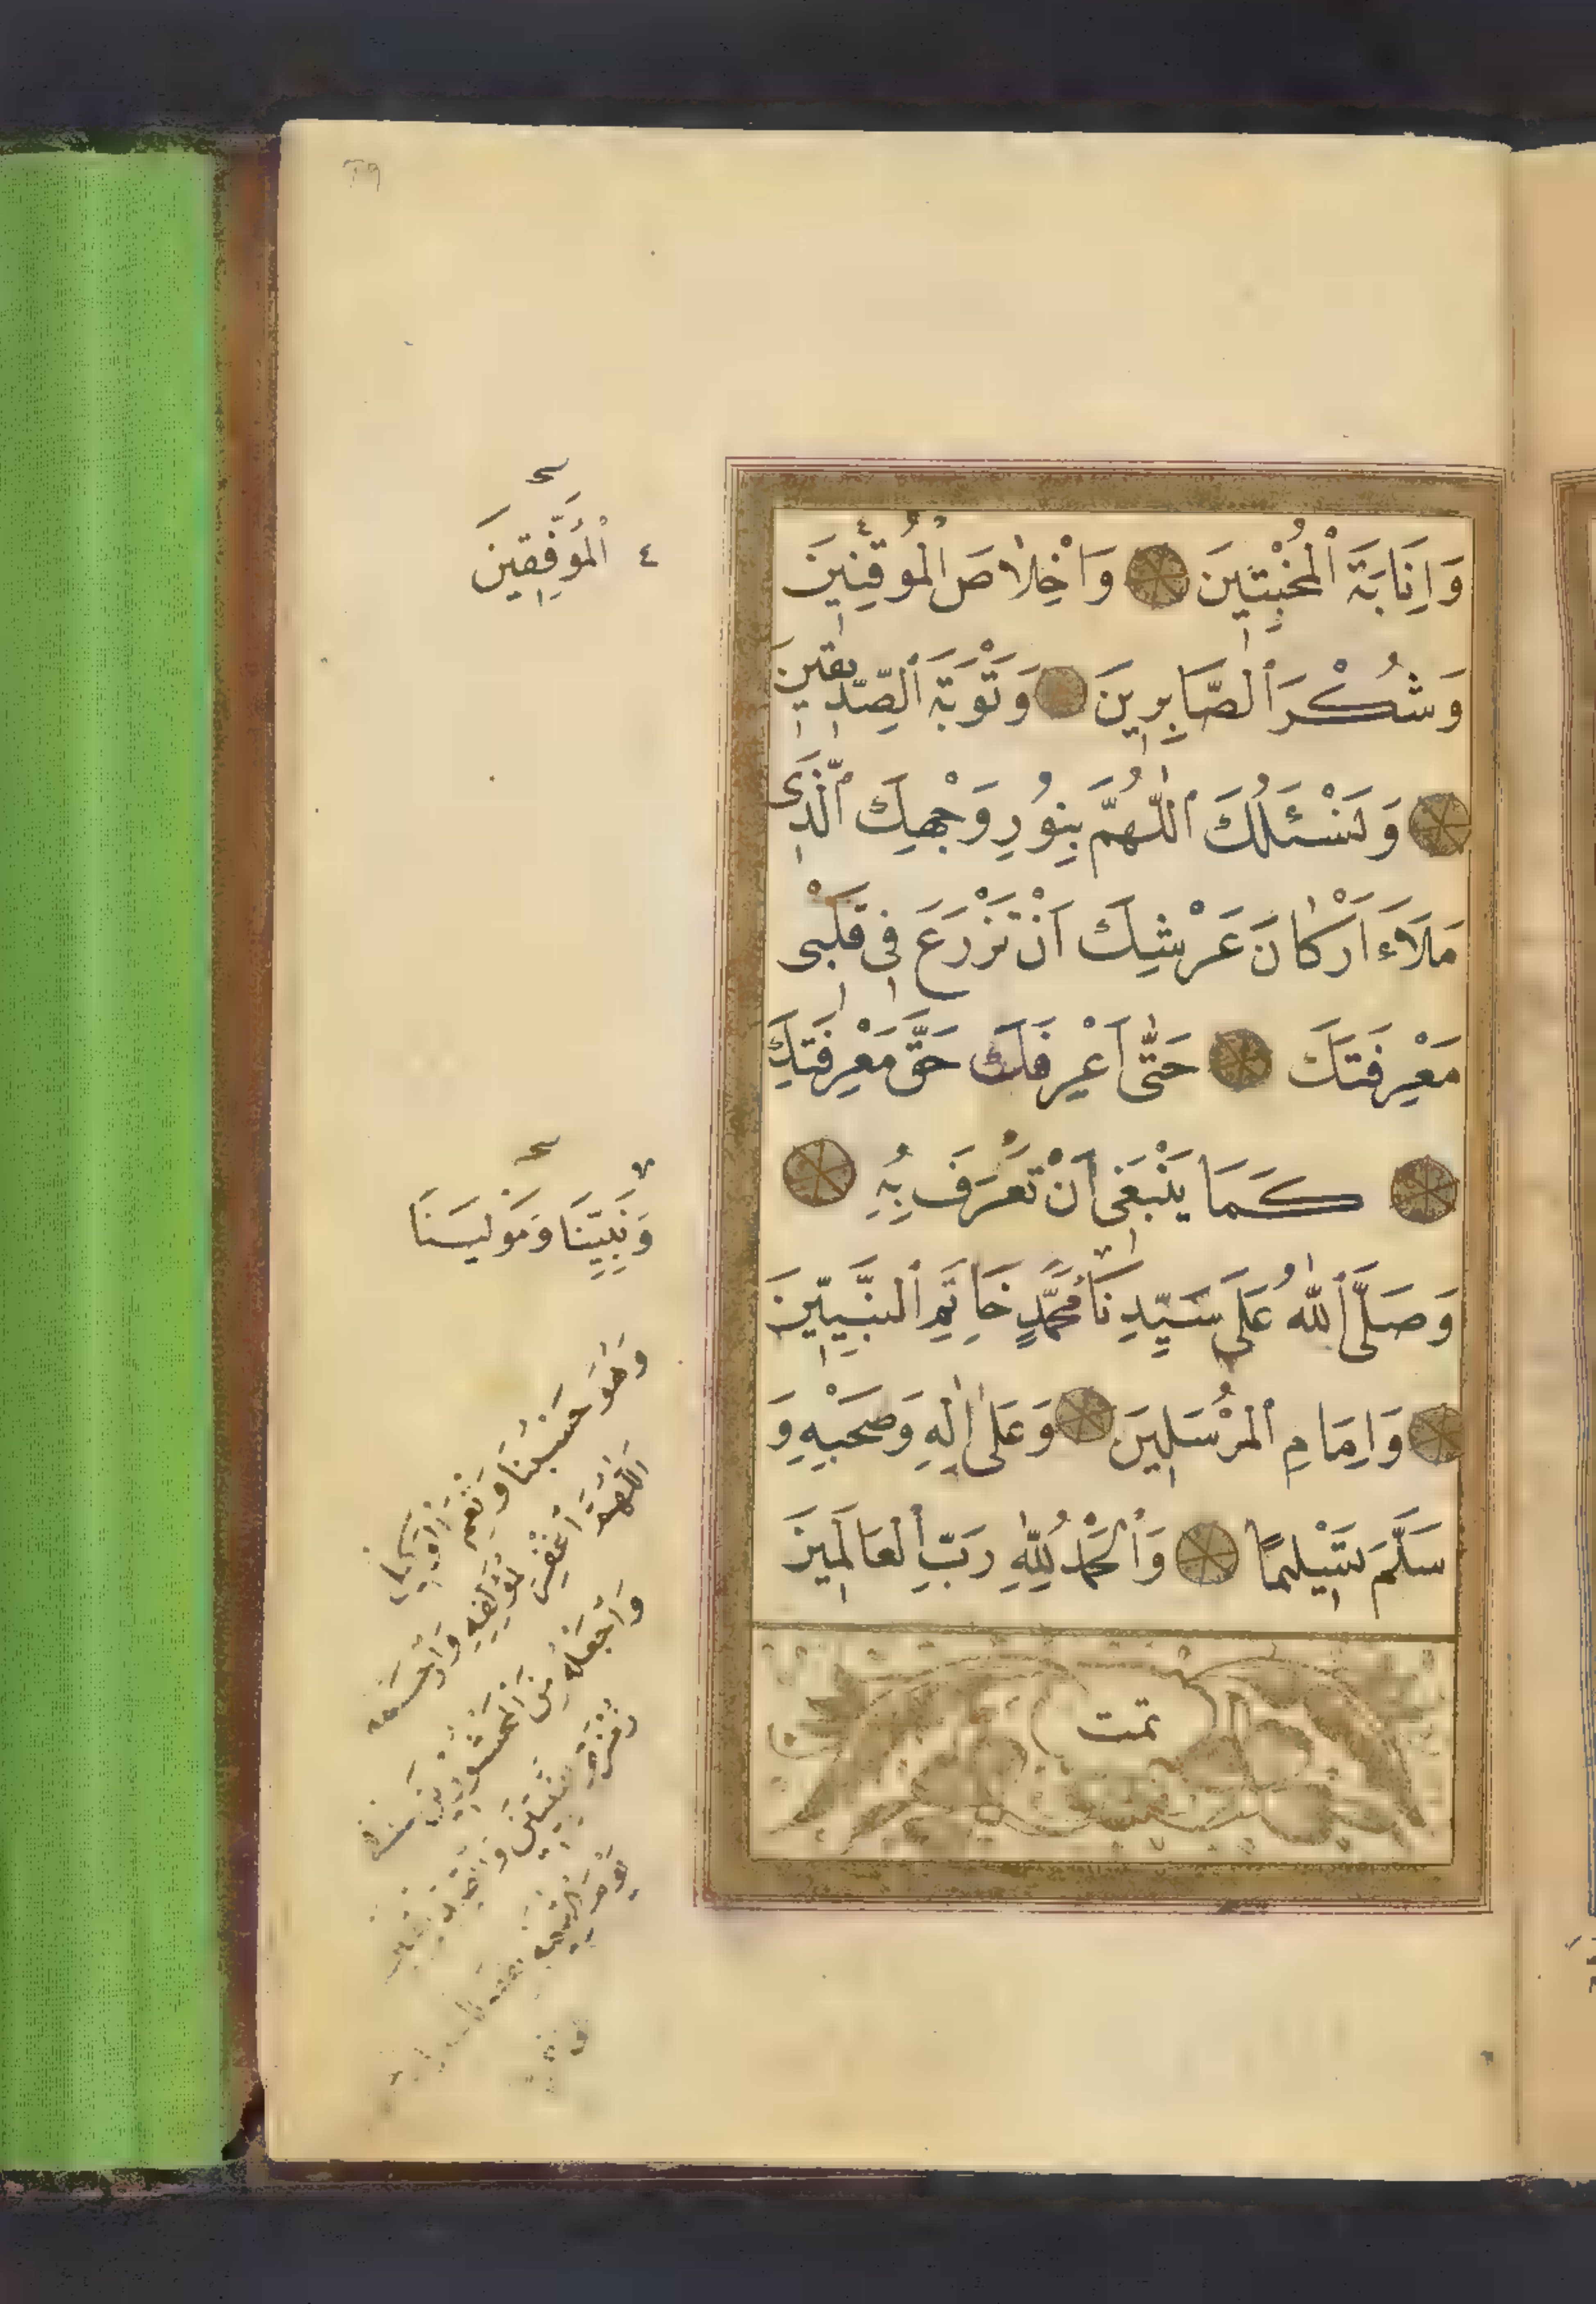 ٢٩
وَاِنَابَةَ ٱلْمُخْبِتِينَ وَاَخْلَاصَ الْمُوقِنِينَ
وَشُكْرَ ٱلصَّابِرِينَ وَتَوْبَةَ ٱلصِّدِّيقِينَ
وَنَسْئَلُكَ ٱللّٰهُمَّ بِنُورِ وَجْهِكَ ٱلَّذِى
مَلَاَءَ اَرْكَانَ عَرْشِكَ اَنْ تَزْرَعَ فِى قَلْبِى
مَعْرِفَتَكَ حَتّٰى اَعْرِفَكَ حَقَّ مَعْرِفَتِكَ
كَمَا يَنْبَغِى اَنْ تُعْرَفَ بِهِ
وَصَلَّى ٱللّٰهُ عَلَى سَيِّدِنَا مُحَمَّدٍ خَاتِمِ ٱلنَّبِيِّينَ
وَاِمَامِ ٱلْمُرْسَلِينَ وَعَلٰى اٰلِهِ وَصَحْبِهِ وَ
سَلَّمَ تَسْلِيمًا وَٱلْحَمْدُ لِلّٰهِ رَبِّ ٱلْعَالَمِينَ
تمت
٤ ٱلْمُوَفَّقِينَ
وَنَبِيِّنَا وَمَوْلَيَنَا
وَهُوَ حَسْبُنَا وَنِعْمَ ٱلْوَكِيلُ
اَللّٰهُمَّ ٱغْفِرْ لِمُؤَلِّفِهِ وَٱرْحَمْهُ
وَٱجْعَلْهُ مِنَ ٱلْمَحْشُورِينَ فى
زُمْرَةِ ٱلنَّبِيِّينَ وَٱلصِّدِّيقِينَ
يَوْمَ ٱلْقِيٰمَةِ